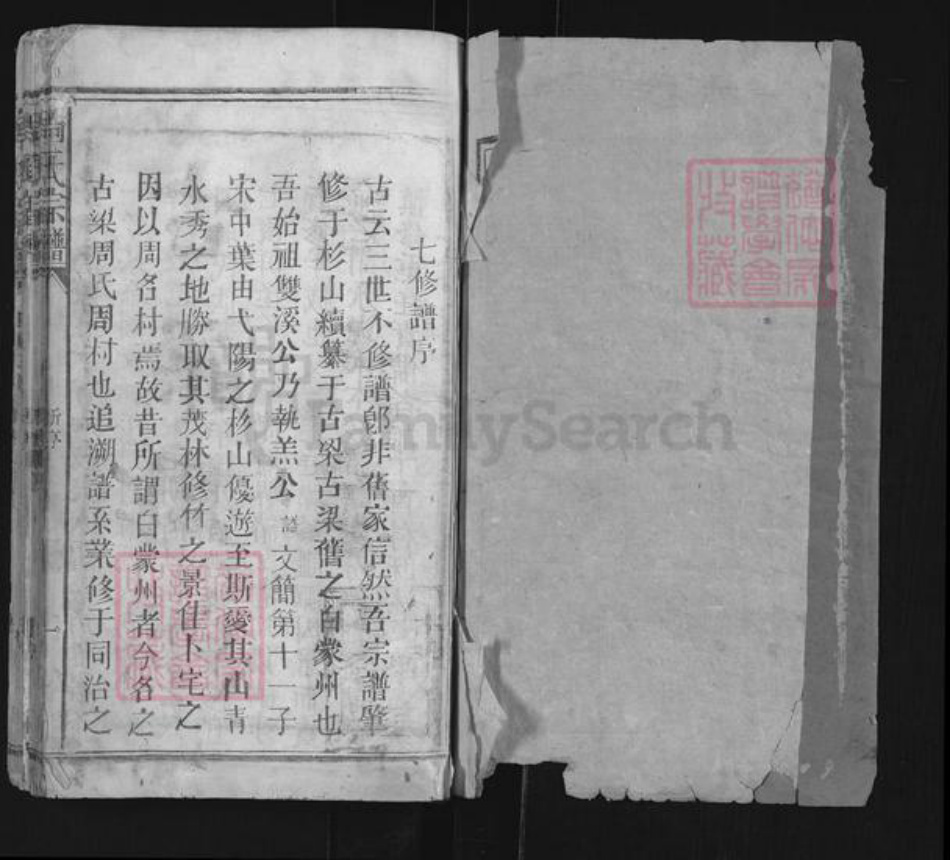 七修譜序
古云三世不修譜即非舊家信然吾宗譜肇
修于杉山續纂于古梁古梁舊之白蒙州也
吾始祖雙溪公乃執羔公諱文簡第十一子
宋中葉由弋陽之杉山優遊至斯愛其山青
水秀之地勝取其茂林修竹之景佳卜宅之
因以周名村焉故昔所謂白蒙州者今名之
古梁周氏周村也追溯譜系業修于同治之
周氏宗譜
新序
一
FamilySearch